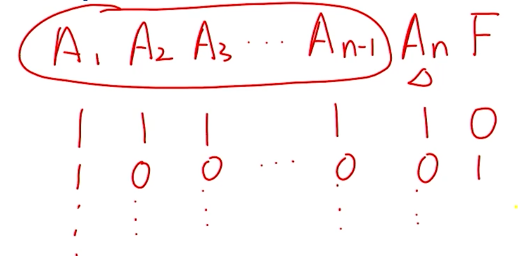 A₁ A₂ A₃ ⋯ Aₙ₋₁ Aₙ F
△
1 1 1 1 1 0
1 0 0 ⋯ 0 0 1
⋮ ⋮ ⋮ ⋮ ⋮